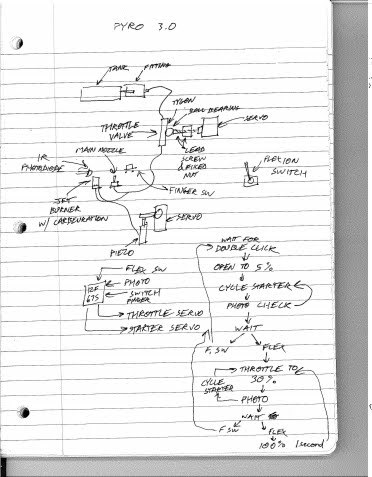 PYRO 3.0
TANK
FITTING
TYGON
BALL BEARING
SERVO
THROTTLE
VALVE
LEAD
SCREW
& FIXED
NUT
MAIN NOZZLE
IR
PHOTODIODE
FLEXION
SWITCH
FINGER SW
JET
BURNER
W/ CARBURATION
SERVO
PIEZO
FLEX SW
PHOTO
SWITCH
FINGER
12F
675
THROTTLE SERVO
STARTER SERVO
WAIT FOR
DOUBLE CLICK
OPEN TO 5%
CYCLE STARTER
PHOTO CHECK
WAIT
F. SW
FLEX
THROTTLE TO
30%
CYCLE
STARTER
PHOTO
WAIT
F SW
FLEX
100% 1 second